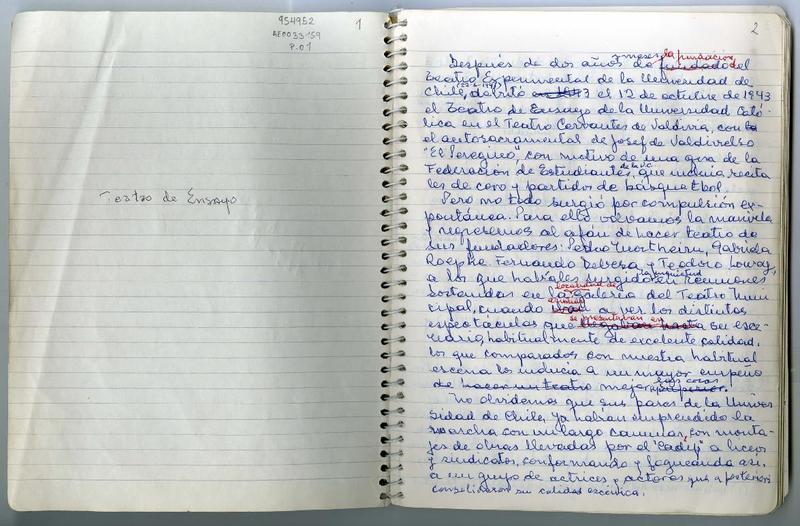 954952
AE0033159
P.01
1
Teatro de Ensayo
2
y meses la fundación
Después de dos años de fundado del
Teatro Experimental de la Universidad de
Chile, debutó en 1943 el 12 de octubre de 1943
el Teatro de Ensayo de la Universidad Cató-
lica en el Teatro Cervantes de Valdivia, con
el autosacramental de Josef de Valdivielso
"El Peregrino", con motivo de una gira de la
Federación de Estudiantes de la U.C. que incluía recita
les de coro y partidos de básquetbol.
Pero no todo surgió por compulsión ex-
pontánea. Para ello volvamos la manivela
y regresemos al afán de hacer teatro de
sus fundadores: Pedro Mortheiru, Gabriela
Roepke Fernando Debesa y Teodoro Lowey,
a los que habíales surgido la inquietud en reuniones
localidad de
sostenidas en la galería del Teatro Muni
cipal, cuando a ver los distintos
se presentaban en
espectáculos que llegaban hasta su esce-
nario, habitualmente de excelente calidad.
Los que comparados con nuestra habitual
escena los inducía a un mayor empeño
de hacer un teatro mejor y superior.
No olvidemos que sus pares de la Univer
sidad de Chile, ya habían emprendido la
marcha con un largo caminar, con monta-
jes de obras llevadas por el "Cadip" a liceos
y sindicatos, conformando y fogueando así
a un grupo de actrices y actores que a posteriori
consolidaron su calidad escénica.